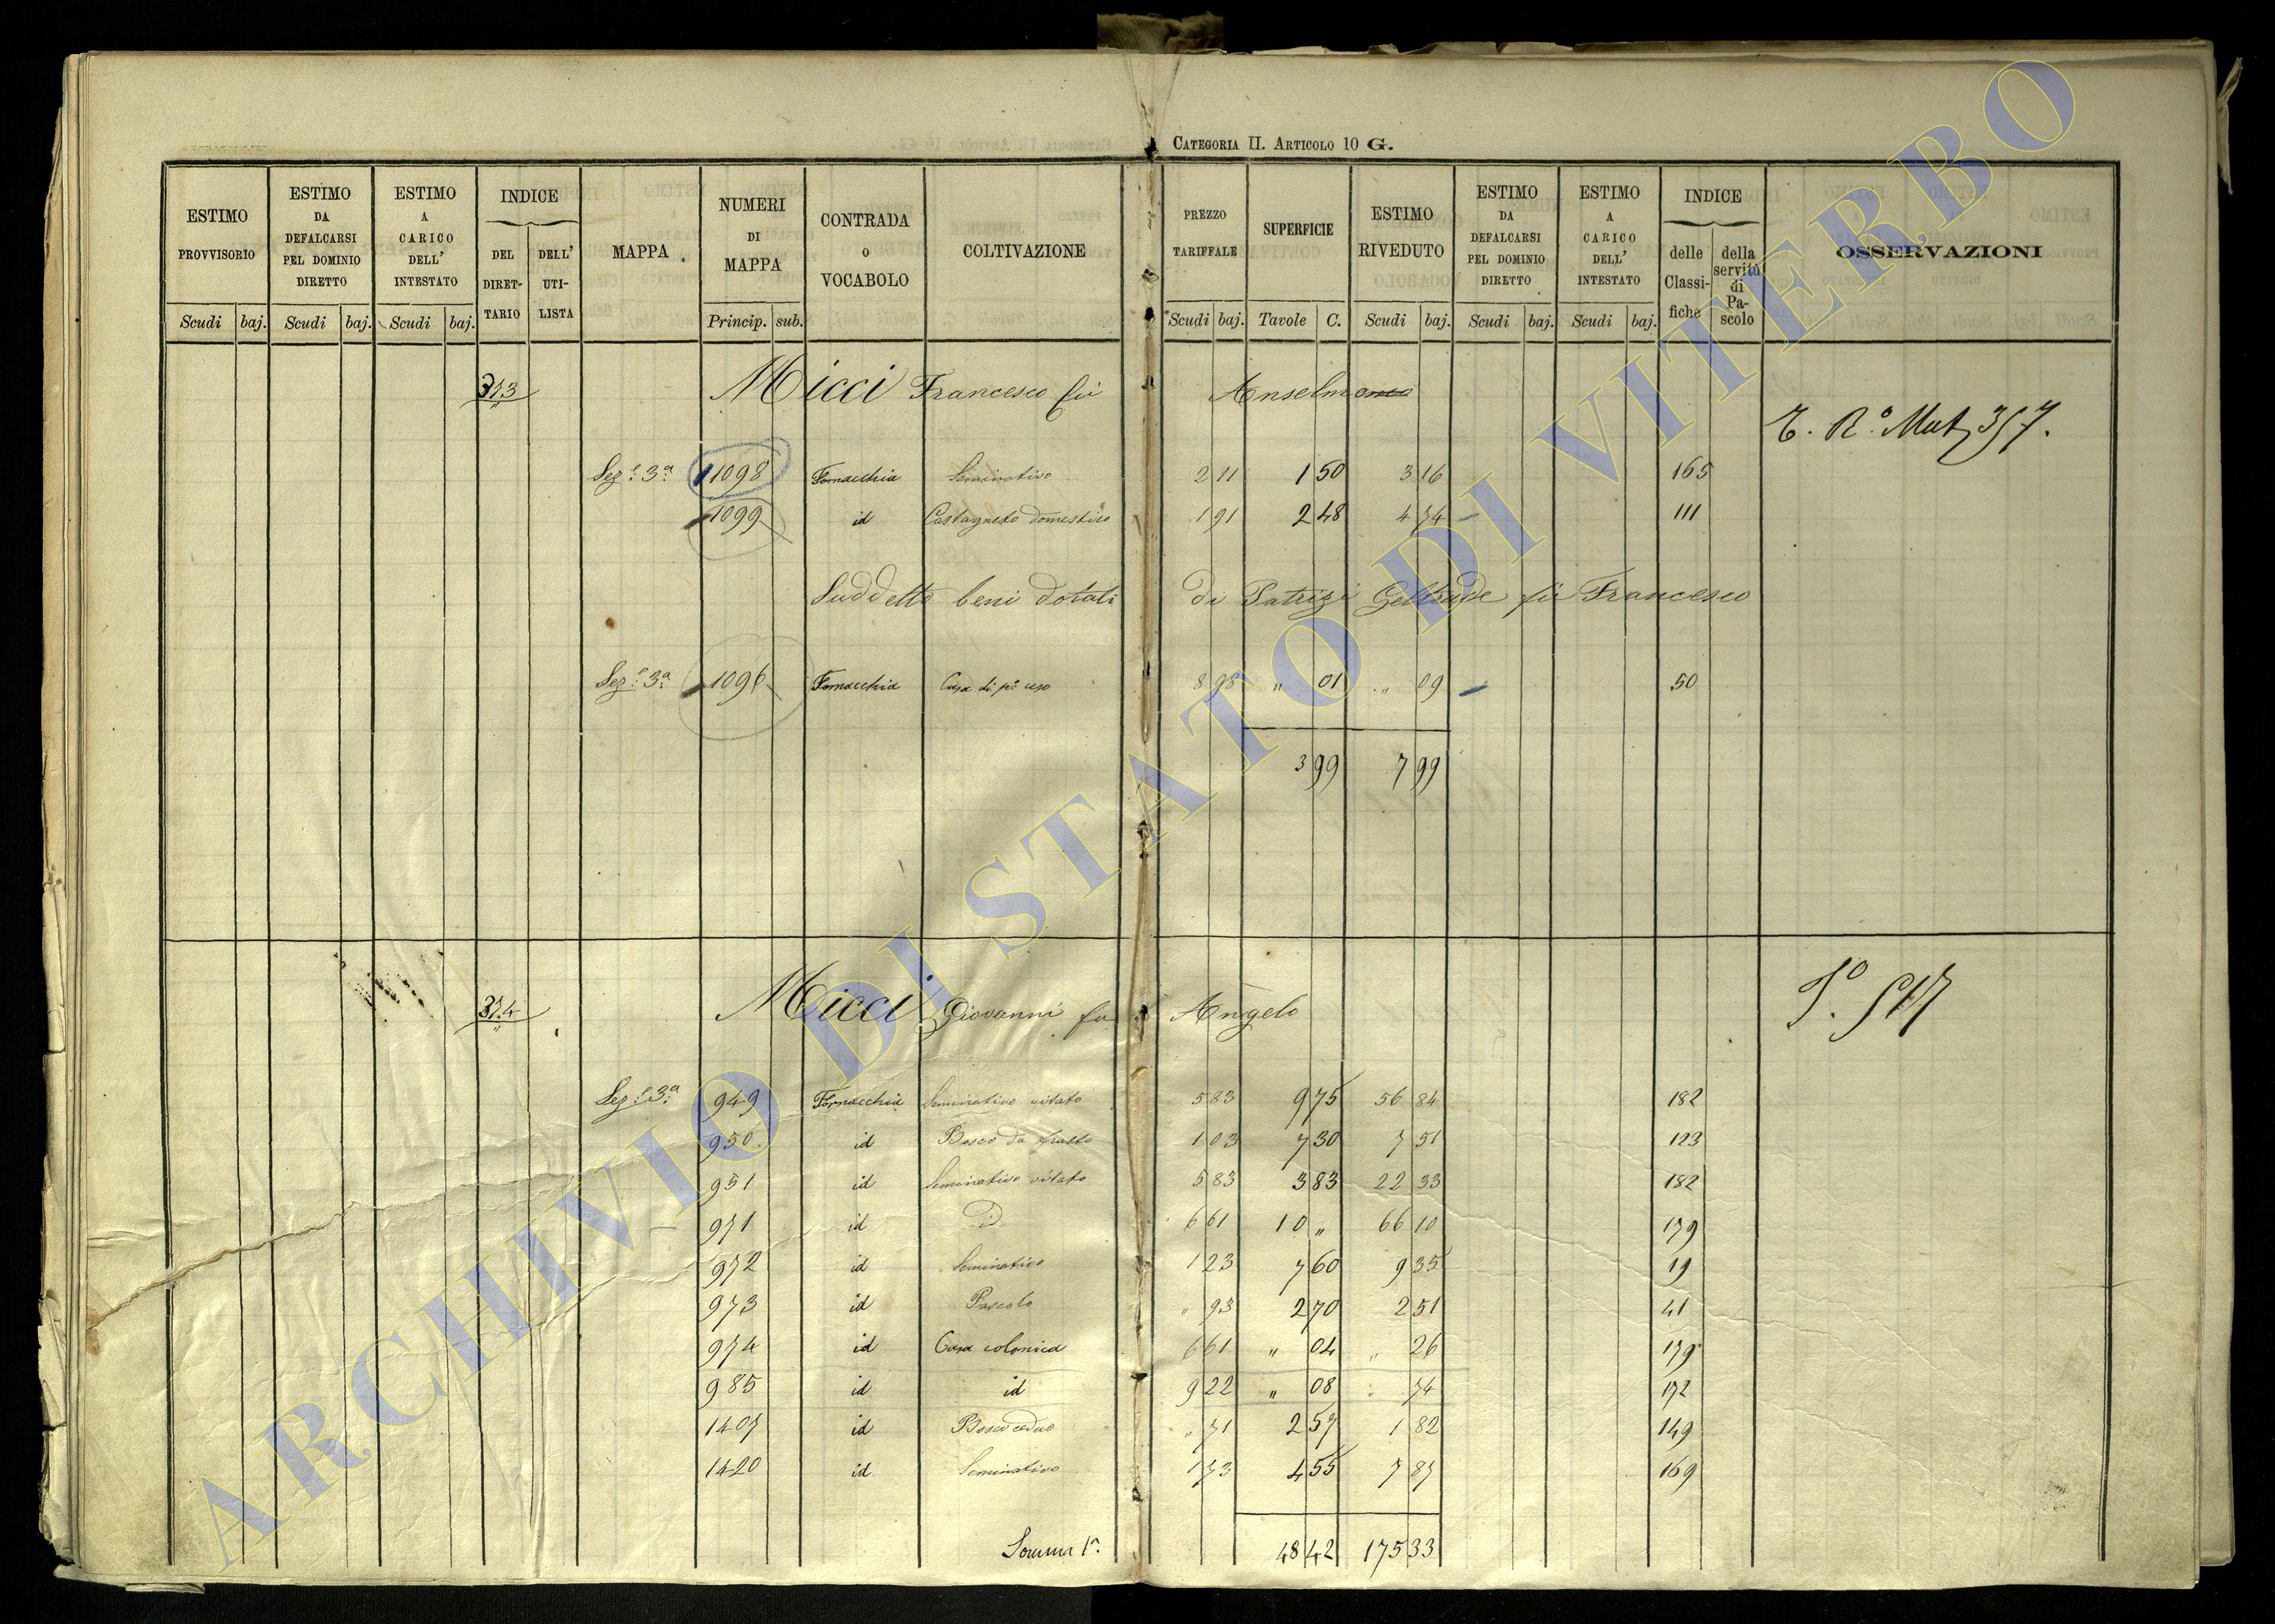 CATEGORIA II. ARTICOLO 10 G.
ESTIMO PROVVISORIO | ESTIMO DA DEFALCARSI PEL DOMINIO DIRETTO | ESTIMO A CARICO DELL' INTESTATO | INDICE DEL DIRET-TARIO | DELL' UTI-LISTA | MAPPA | NUMERI DI MAPPA | CONTRADA O VOCABOLO | COLTIVAZIONE | PREZZO TARIFFALE | SUPERFICIE | ESTIMO RIVEDUTO | ESTIMO DA DEFALCARSI PEL DOMINIO DIRETTO | ESTIMO A CARICO DELL' INTESTATO | INDICE delle Classi-fiche | della servitù di Pa-scolo | OSSERVAZIONI
Scudi baj. Scudi baj. Scudi baj. Princip. sub. Scudi baj. Tavole C. Scudi baj. Scudi baj. Scudi baj.
373 Micci Francesco fu Anselmo
Sez.e 3a 1098 Fornacchia Seminativo 2 11 1 50 3 16 165
1099 id Castagneto domestico 1 91 2 48 4 74 111
Suddetto beni dotali di Patrizi Geltrude fu Francesco
Sez.e 3a 1096 Fornacchia Casa di po uso 8 98 " 01 " 09 50
3 99 7 99
374 Micci Giovanni fu Angelo
Sez.e 3a 949 Fornacchia Seminativo vitato 5 83 9 75 56 84 182
950 id Bosco da frutto 1 03 7 30 7 51 123
951 id Seminativo vitato 5 83 3 83 22 33 182
971 id id 6 61 10 " 66 10 179
972 id Seminativo 1 23 7 60 9 35 19
973 id Pascolo " 93 2 70 2 51 41
974 id Casa colonica 6 61 " 04 " 26 179
985 id id 9 22 " 08 " 74 172
1407 id Bosco ceduo " 71 2 57 1 82 149
1420 id Seminativo 1 73 4 55 7 87 169
Somma 1a. 48 42 175 33
ARCHIVIO DI STATO DI VITERBO